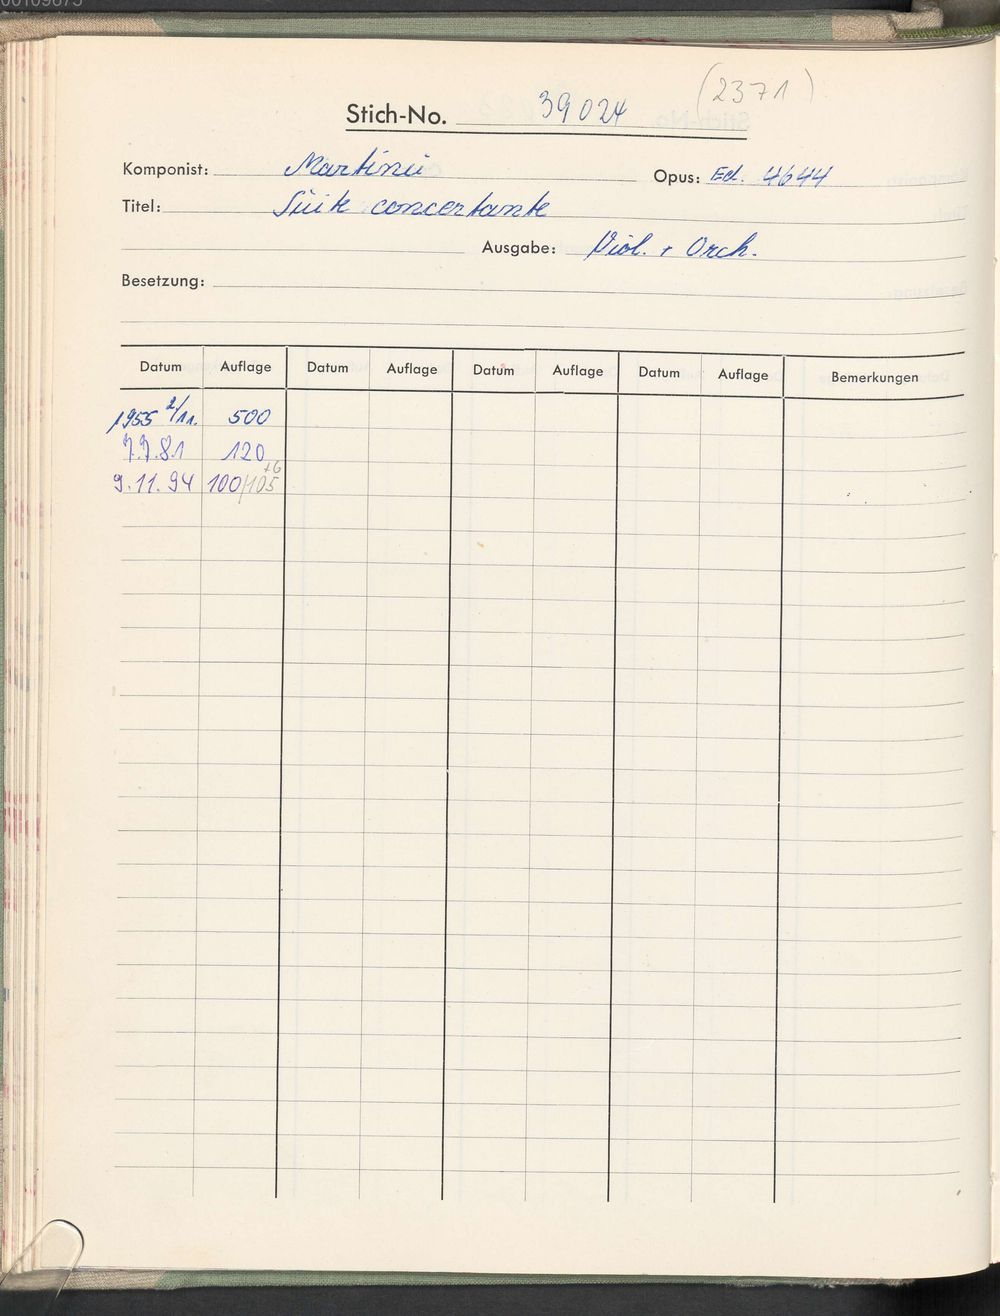 (2371)
Stich-No. 39024
Komponist: Martinů
Opus: Ed. 4644
Titel: Suite concertante
Ausgabe: Viol. + Orch.
Besetzung:
Datum Auflage Datum Auflage Datum Auflage Datum Auflage Bemerkungen
1955 2/11. 500
7.7.81 120
+6
9.11.94 100/105